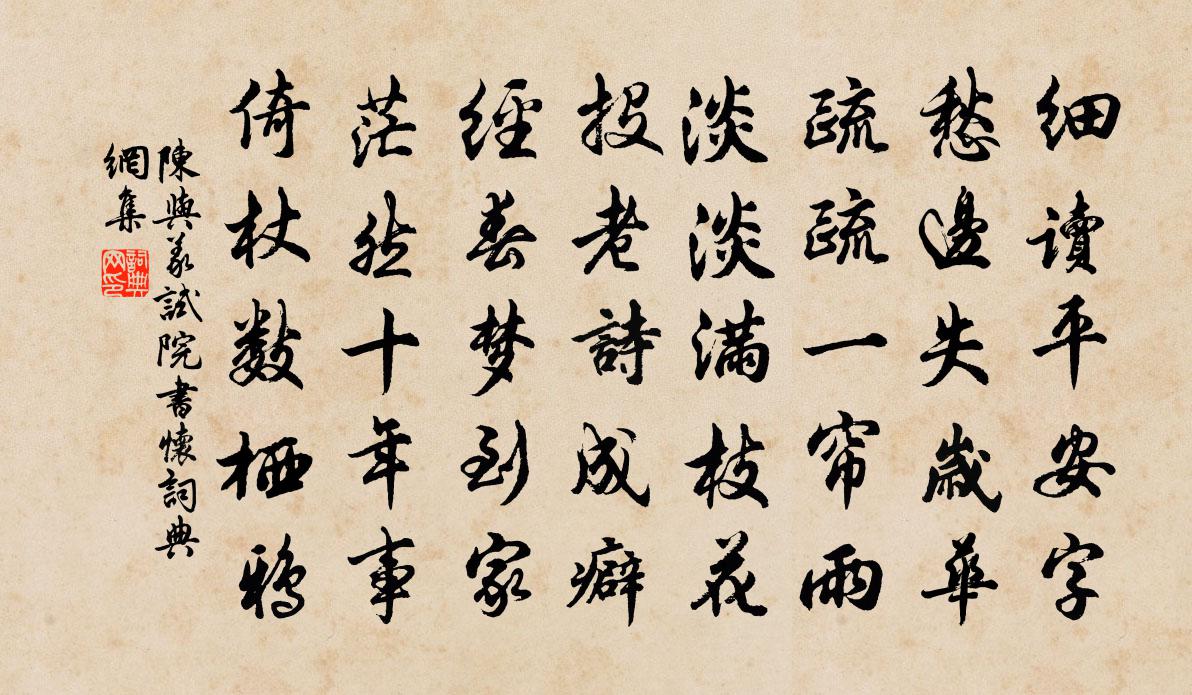 細讀平安字
愁邊失歲華
疏疏一帘雨
淡淡滿枝花
投老詩成癖
經春梦到家
茫然十年事
倚杖數栖鴉
陳與義試院書懷詞典
網集
詞典网印